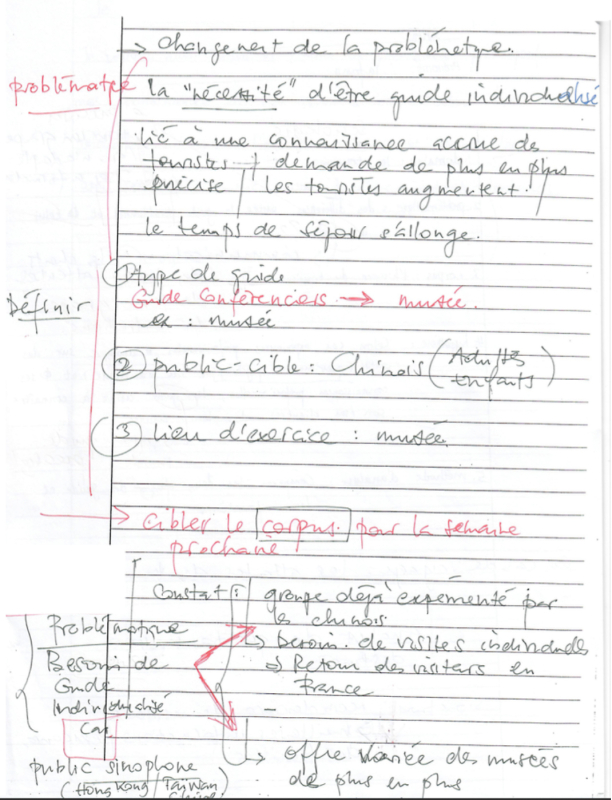 → changement de la problématique.
problématique la "nécessité" d'être guide individualisé
lié à une connaissance accrue des
touristes + demande de plus en plus
précise / les touristes augmentent.
le temps de séjour s'allonge.
① type de guide
Guide Conférenciers → musée.
Définir
ex : musée
② public-cible : Chinois (Adultes
Enfants)
③ lieu d'exercice : musée
→ Cibler le corpus pour la semaine
prochaine
Constat : groupe déjà expémenté par
les chinois
Problématique
↳ besoin de visites individuels
Besoin de
⇒ Retour des visiters en
Guide
France
Individualisé
Car
↳ offre variée des musées
public sinophone
de plus en plus
(Hong Kong / Taïwan